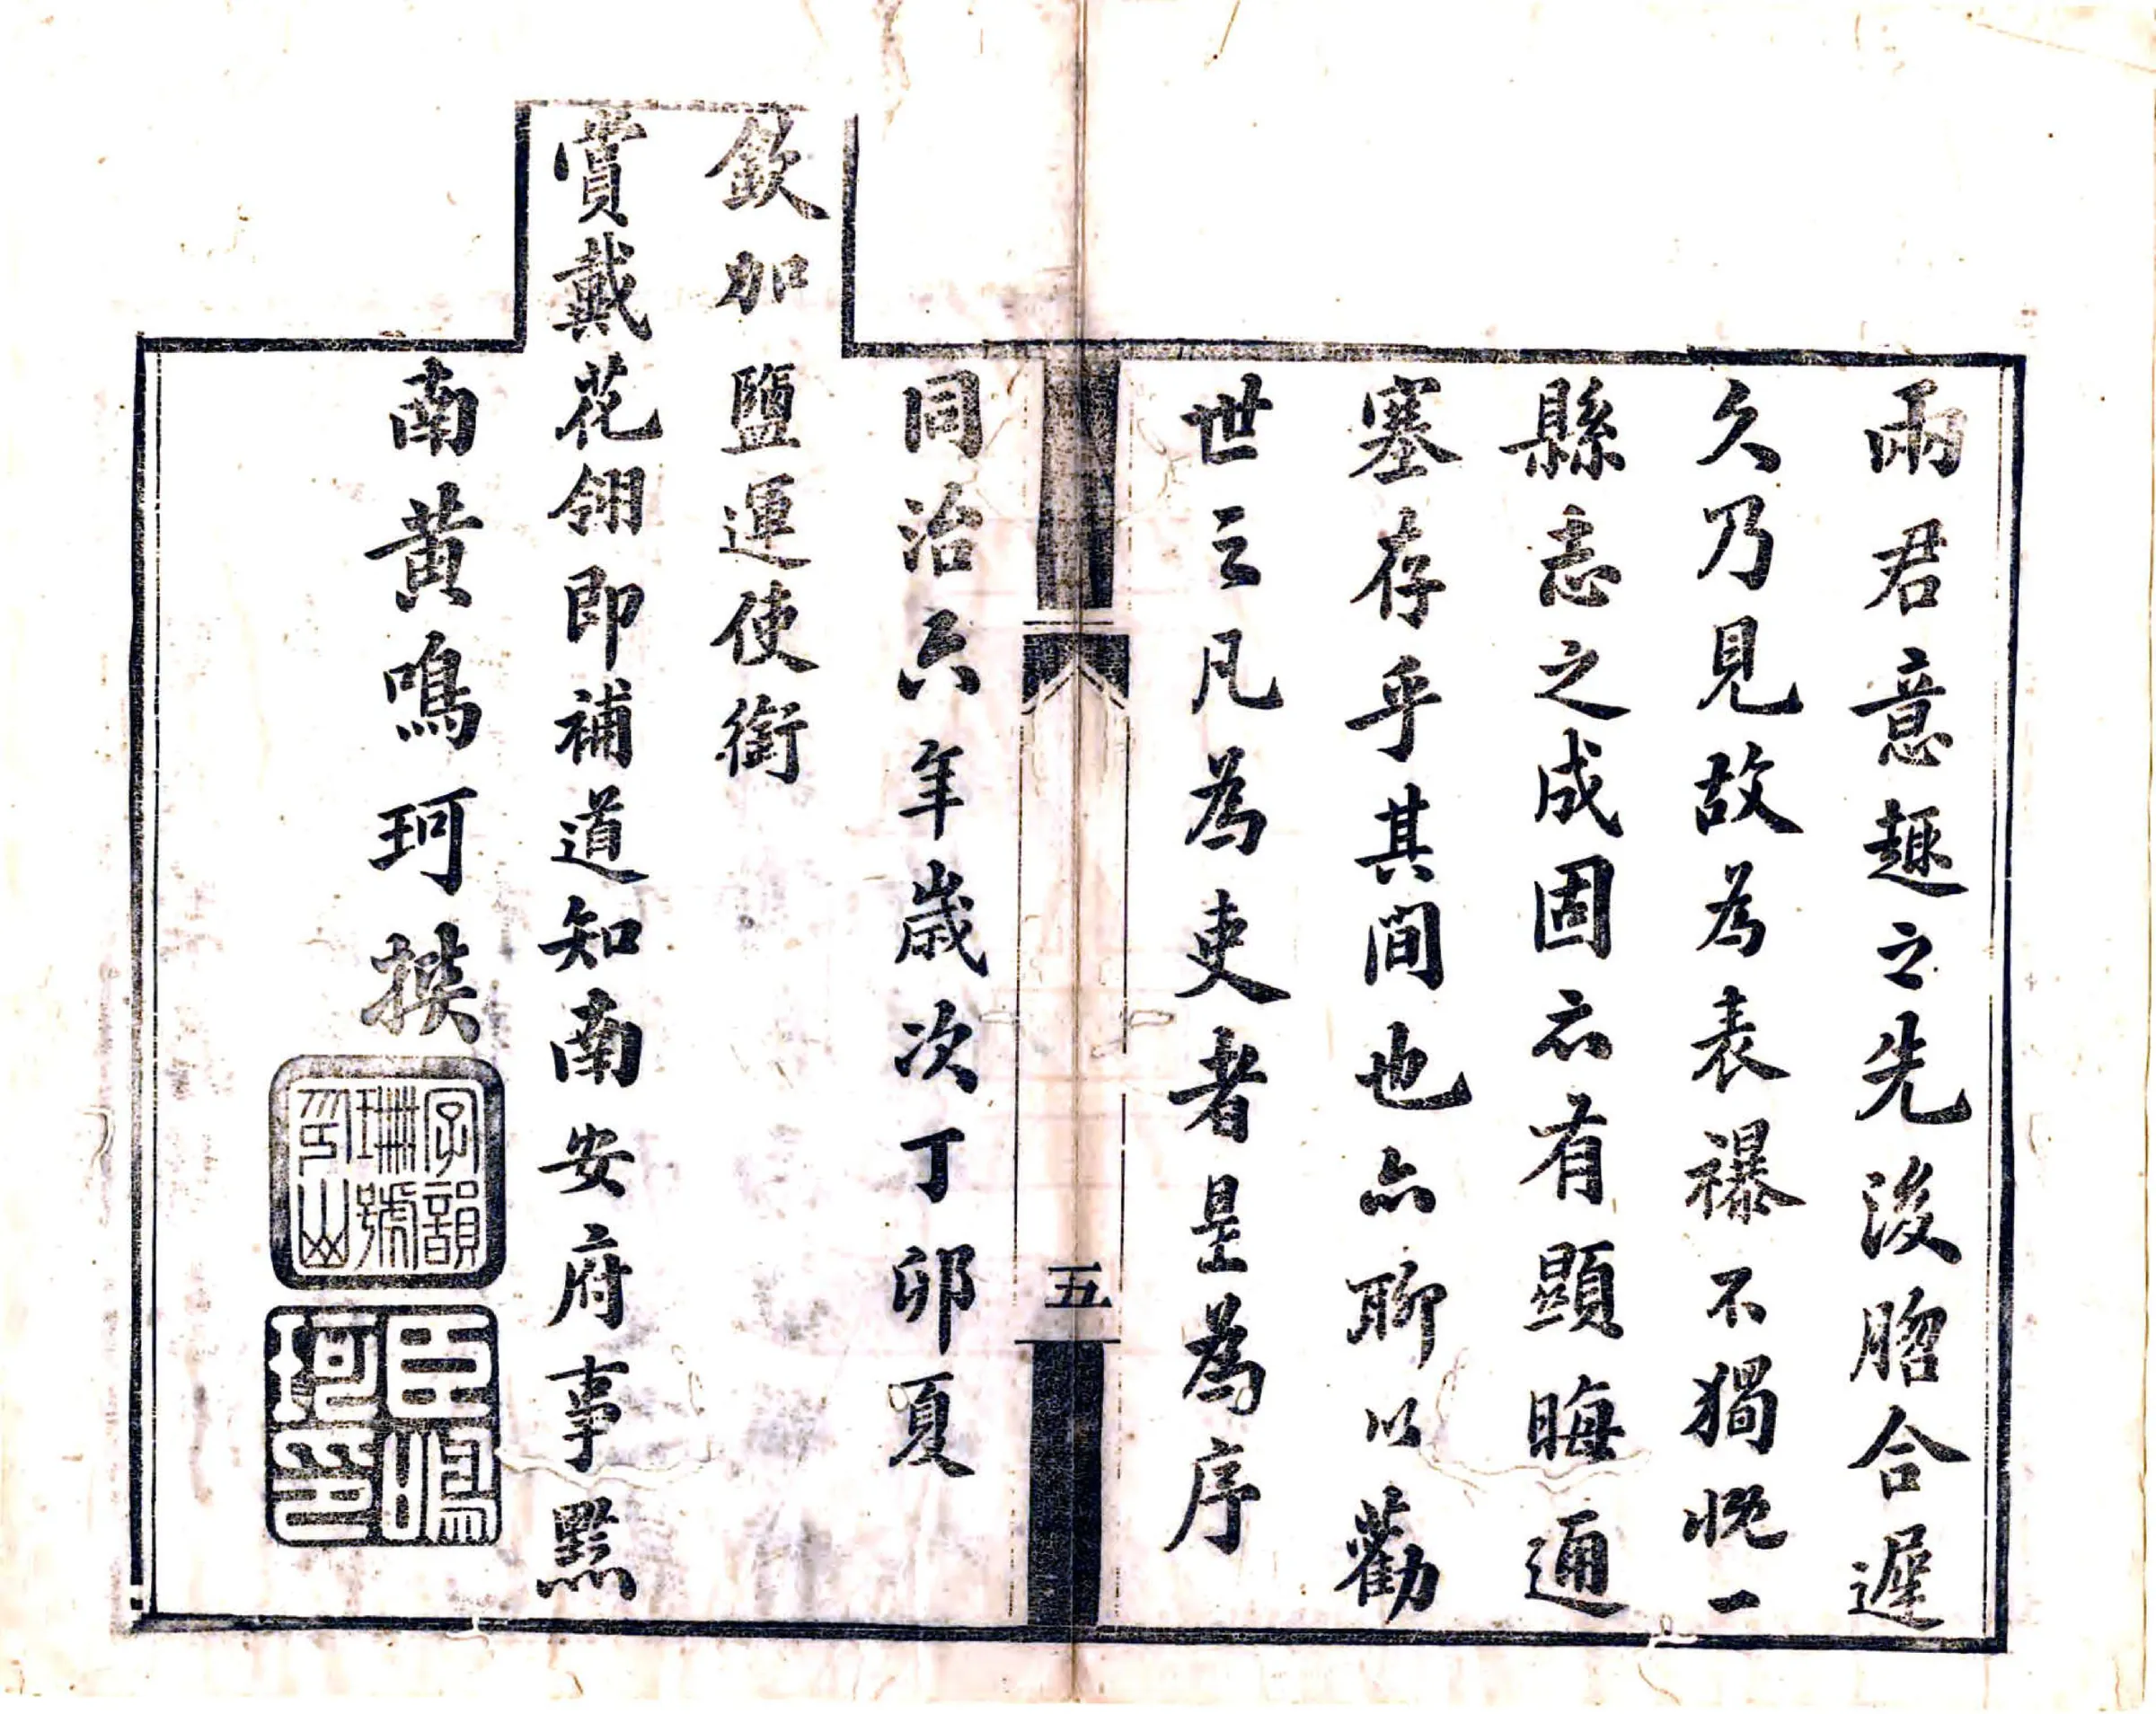 兩君意趣之先後脗合遲
久乃見故為表襮不獨悦一
縣志之成固亦有顯晦通
塞存乎其間也亦聊以勸
世之凡為吏者是為序
五
同治六年歲次丁卯夏
欽加鹽運使銜
賞戴花翎即補道知南安府事黔
南黃鳴珂撰
字韻珊號印山
臣鳴珂印